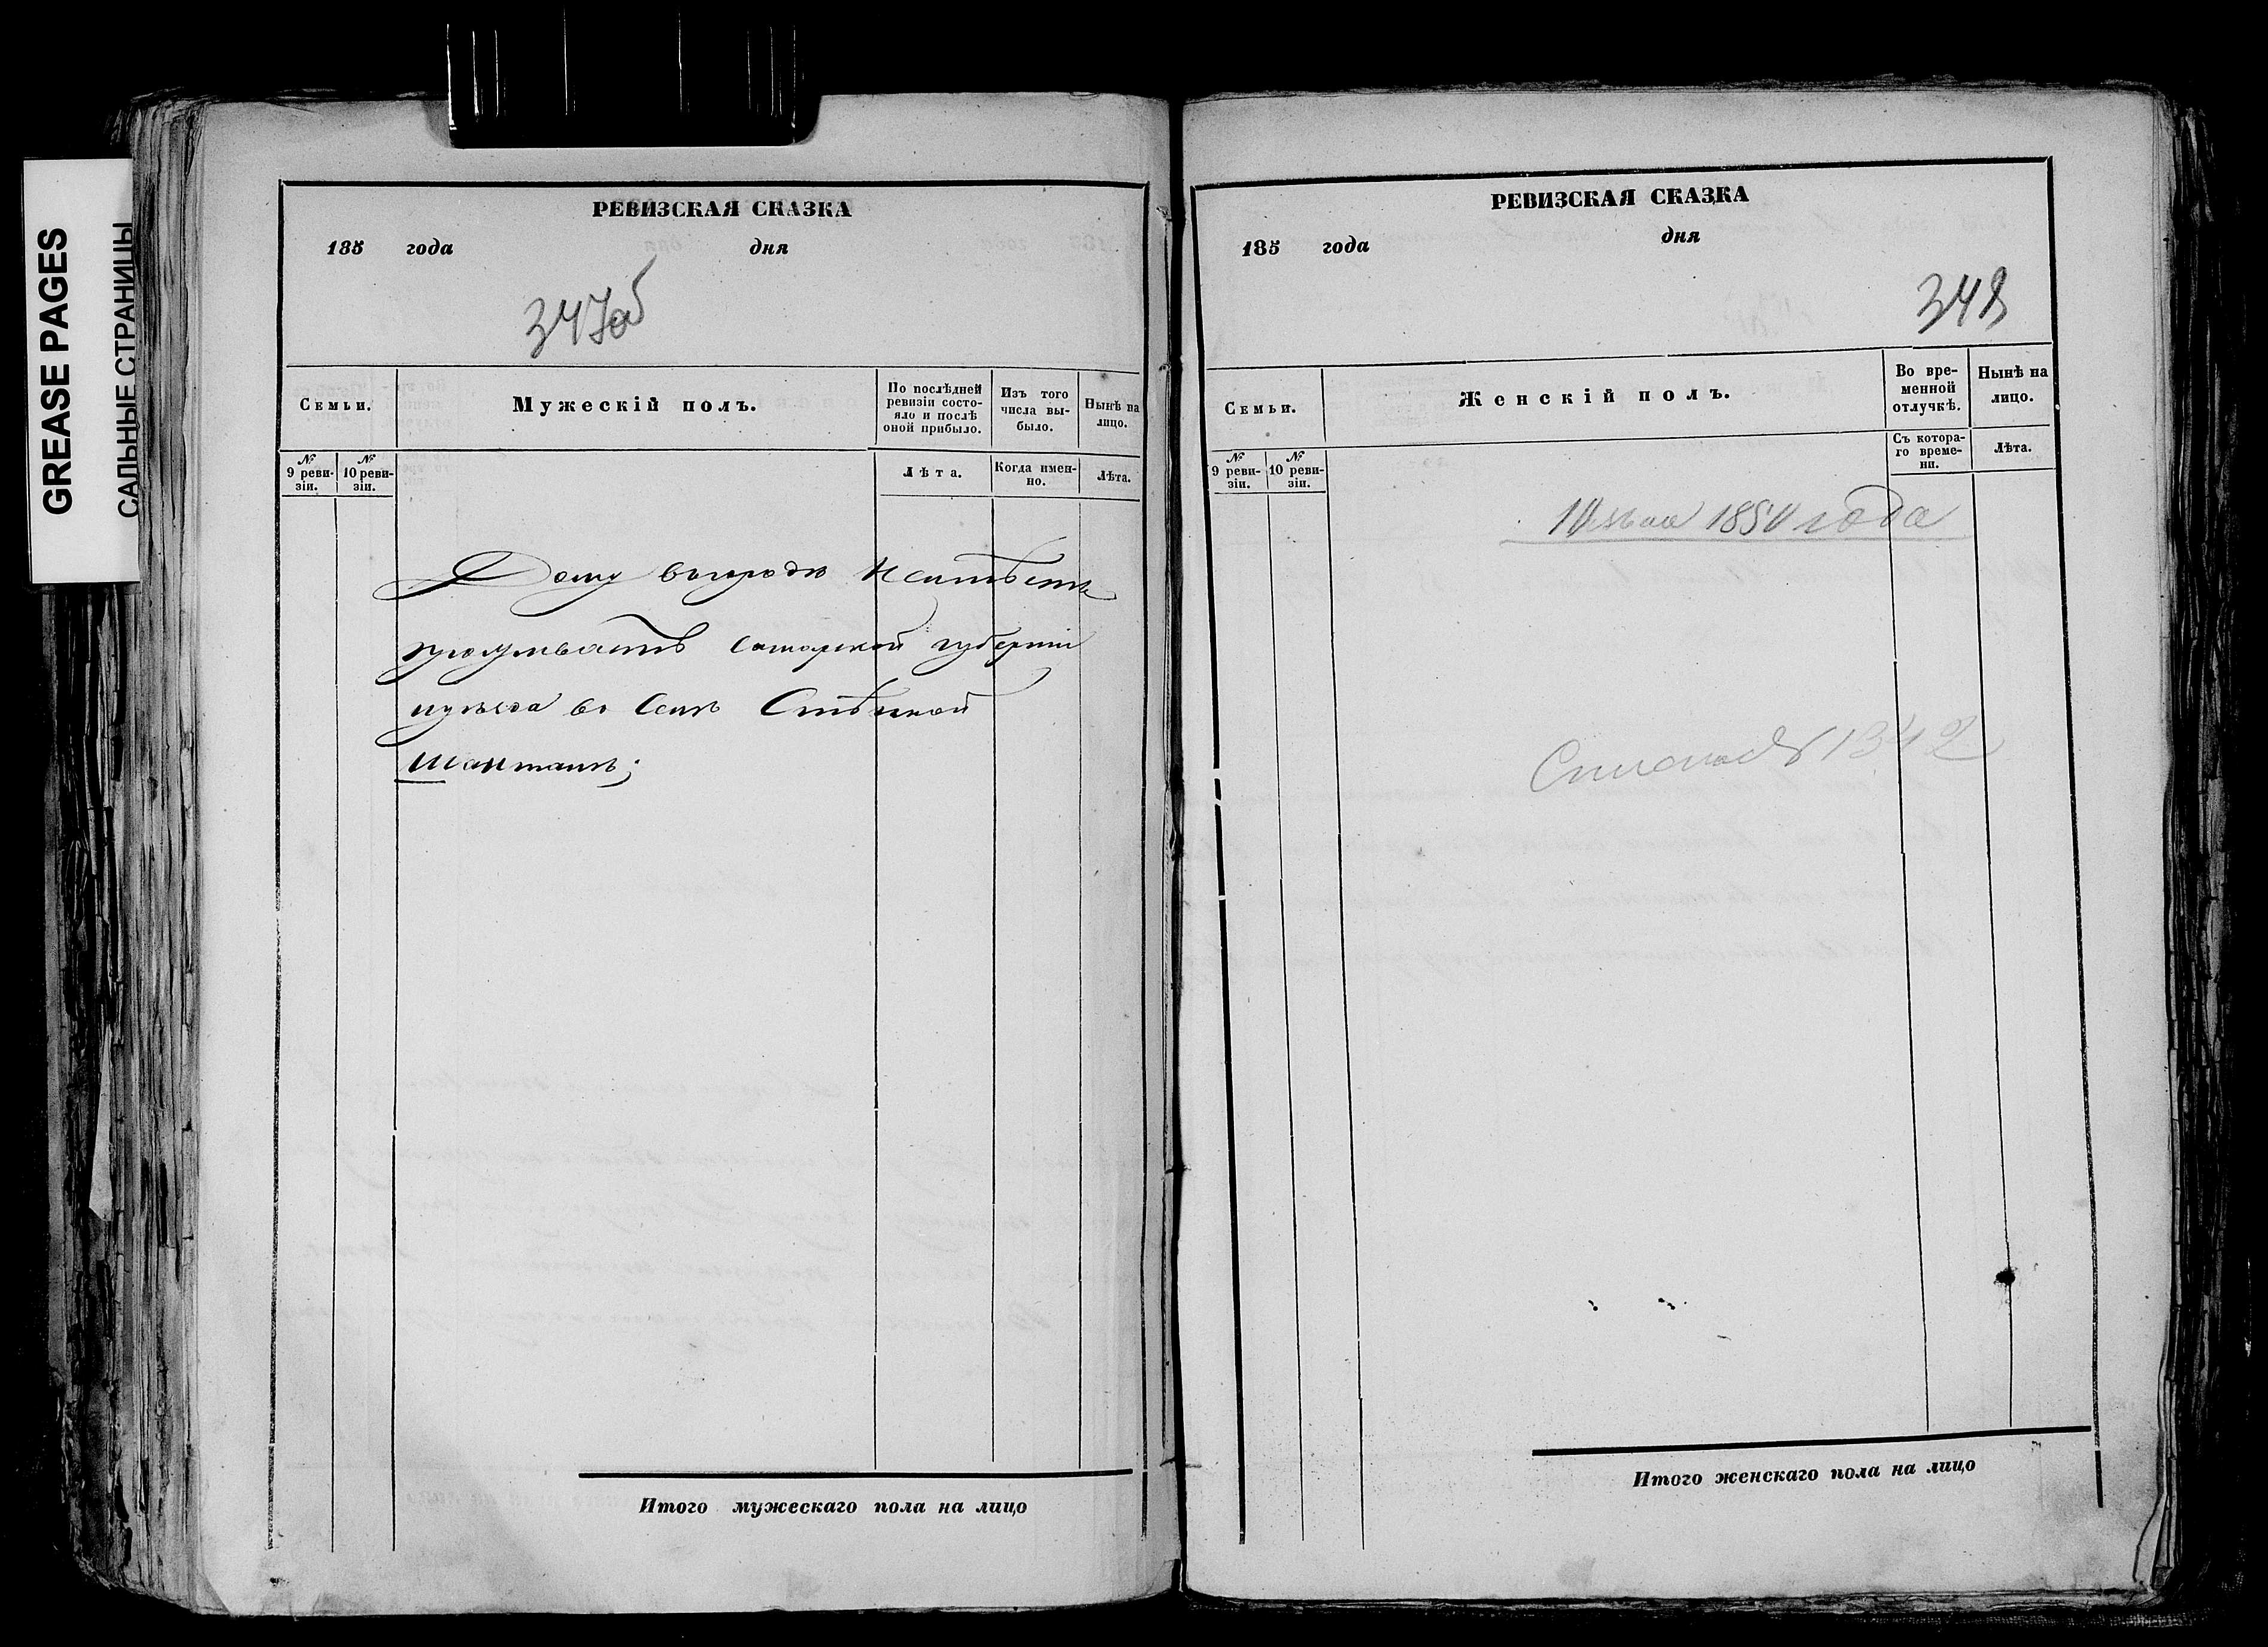 GREASE PAGES
САЛЬНЫЕ СТРАНИЦЫ
РЕВИЗСКАЯ СКАЗКА
185 года дня
347об
Семьи.
Мужескій полъ.
По послѣдней ревизіи состояло и послѣ оной прибыло.
Изъ того числа выбыло.
Нынѣ на лицо.
№ 9 ревизіи.
№ 10 ревизіи.
Лѣта.
Когда именно.
Лѣта.
Дому въ городѣ неимѣетъ
Самарской губерніи
уѣзда въ Селѣ
Шанталѣ;
Итого мужескаго пола на лицо
РЕВИЗСКАЯ СКАЗКА
185 года дня
348
Семьи.
Женскій полъ.
Во временной отлучкѣ.
Нынѣ на лицо.
№ 9 ревизіи.
№ 10 ревизіи.
Съ котораго времени.
Лѣта.
года
Итого женскаго пола на лицо